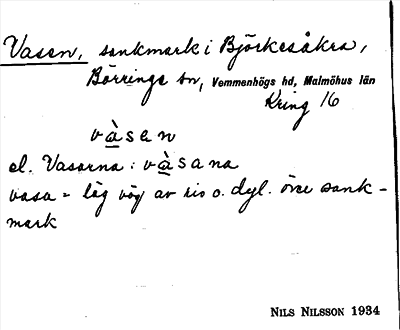 Vasen, sankmark i Björkesåkra,
Börringe sn, Vemmenhögs hd, Malmöhus län
Kring 16
vàsen
el. Vasarna : vàsana
vasa = låg väg av ris o. dyl. över sank-
mark
NILS NILSSON 1934